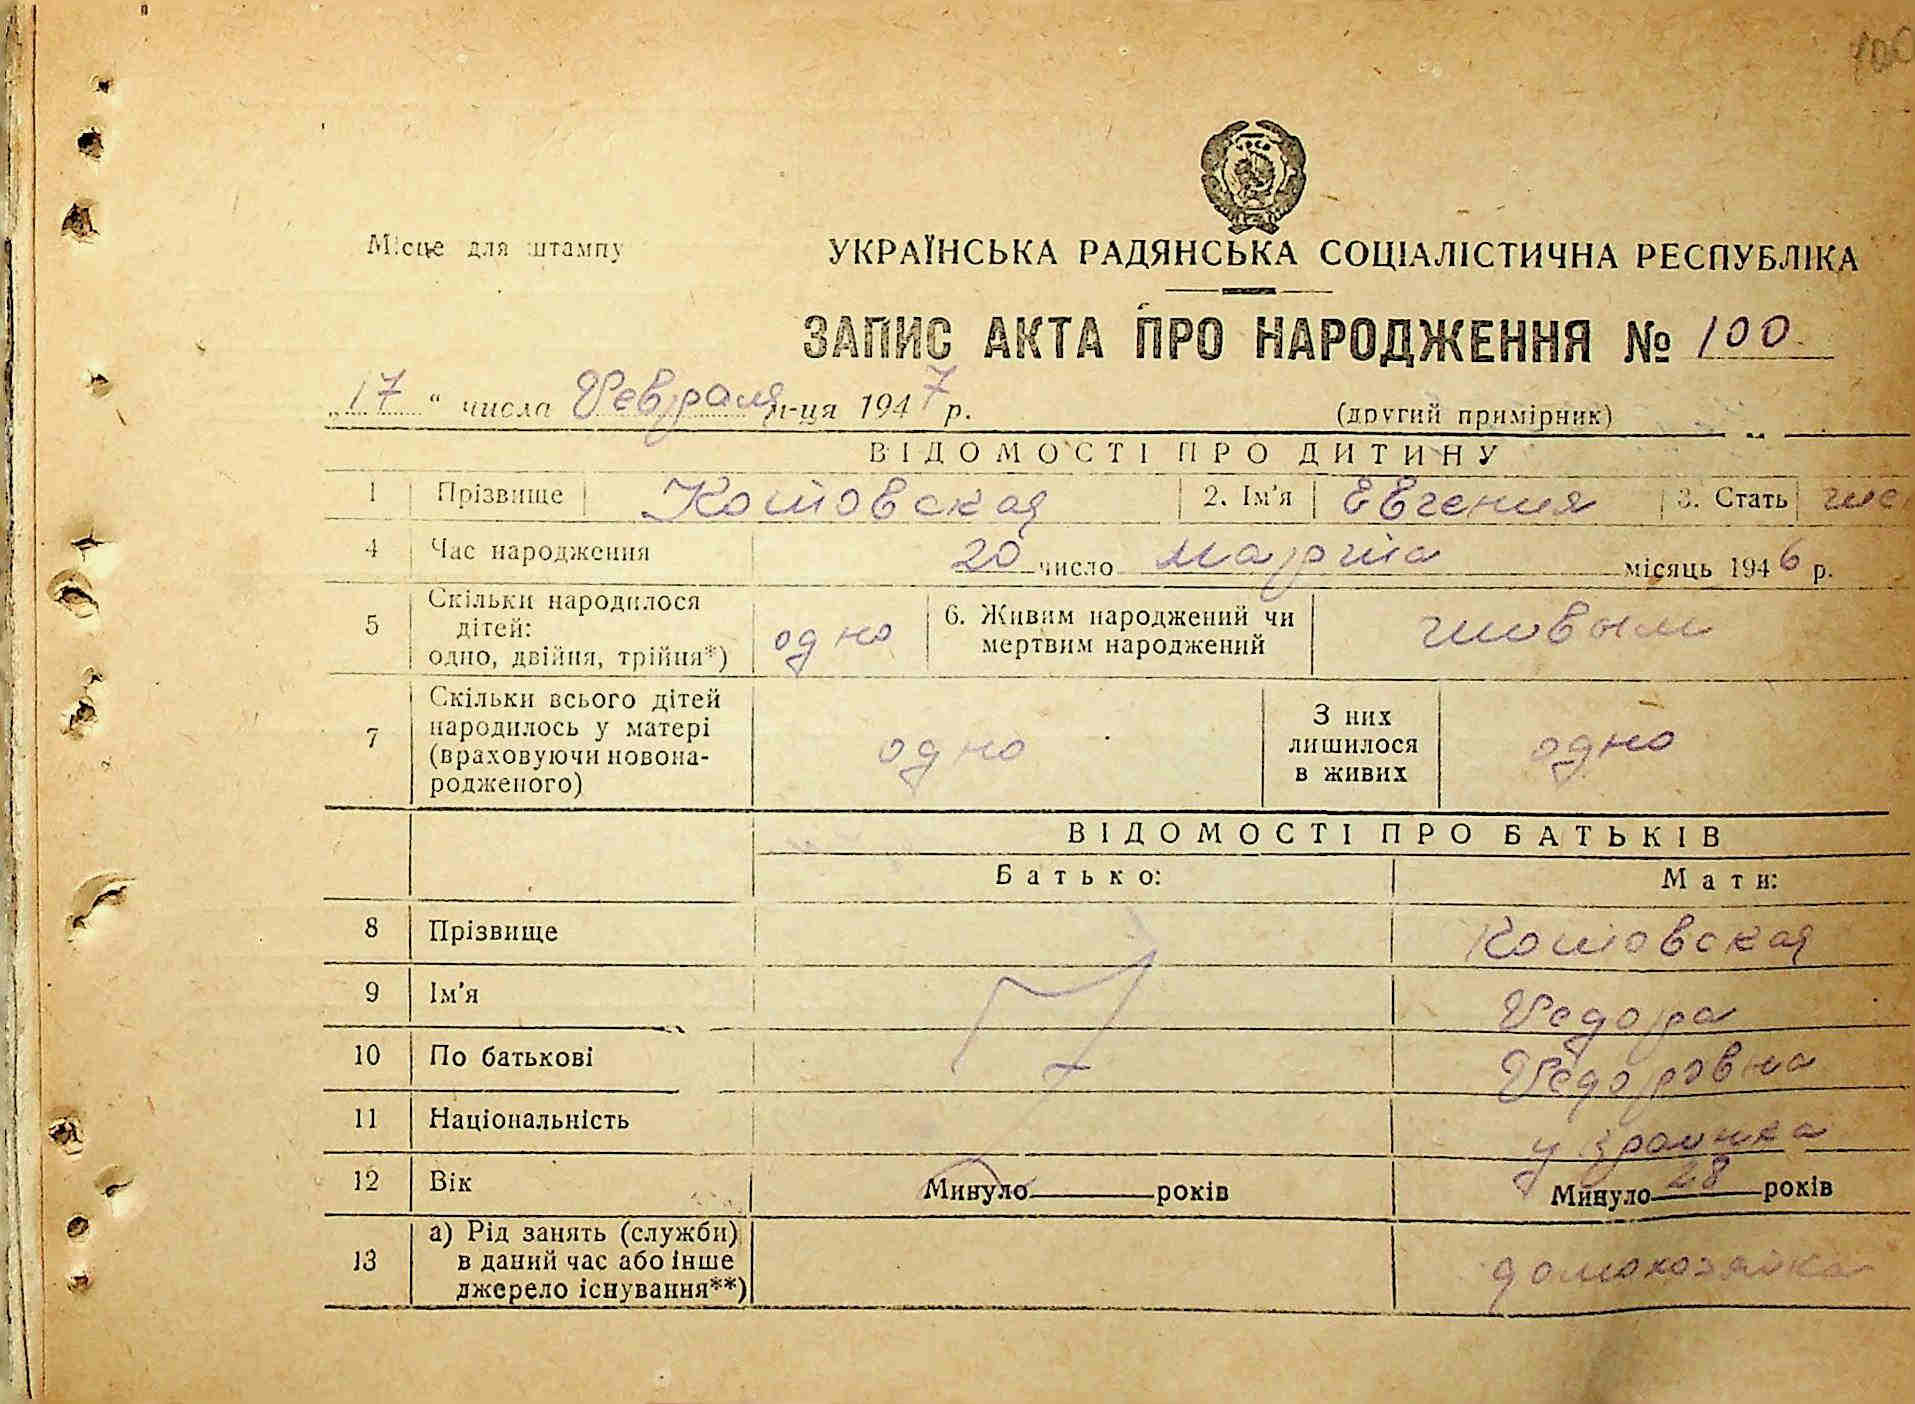 100
УРСР
Місце для штампу
УКРАЇНСЬКА РАДЯНСЬКА СОЦІАЛІСТИЧНА РЕСПУБЛІКА
ЗАПИС АКТА ПРО НАРОДЖЕННЯ № 100
„17“ числа Февраля м-ця 1947 р. (другий примірник)
ВІДОМОСТІ ПРО ДИТИНУ
1 Прізвище Котовская 2. Ім'я Евгения 3. Стать жен
4 Час народження 20 число марта місяць 1946 р.
5 Скільки народилося дітей: одно, двійня, трійня*) одно 6. Живим народжений чи мертвим народжений живым
7 Скільки всього дітей народилось у матері (враховуючи новонародженого) одно З них лишилося в живих одно
ВІДОМОСТІ ПРО БАТЬКІВ
Батько: Мати:
8 Прізвище Котовская
9 Ім'я Федора
10 По батькові Федоровна
11 Національність украинка
12 Вік Минуло року Минуло 28 років
13 а) Рід занять (служби) в даний час або інше джерело існування**) домохозяйка